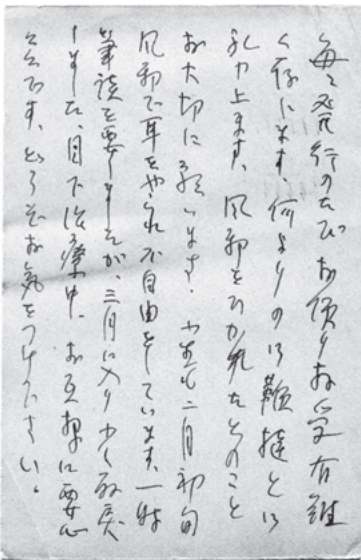 毎々発行のたびお便りお受有難
く存じます、何よりの御鞭撻と御
礼申上ます、風邪をひかれたとのこと
お大切に願います。小生も二月初旬
風邪で耳をやられ不自由をしています、一時
筆談を要しましたが、三月に入り少し取戻
しました、目下治療中、お互様に要心
こそです、どうぞお気をつけ下さい。